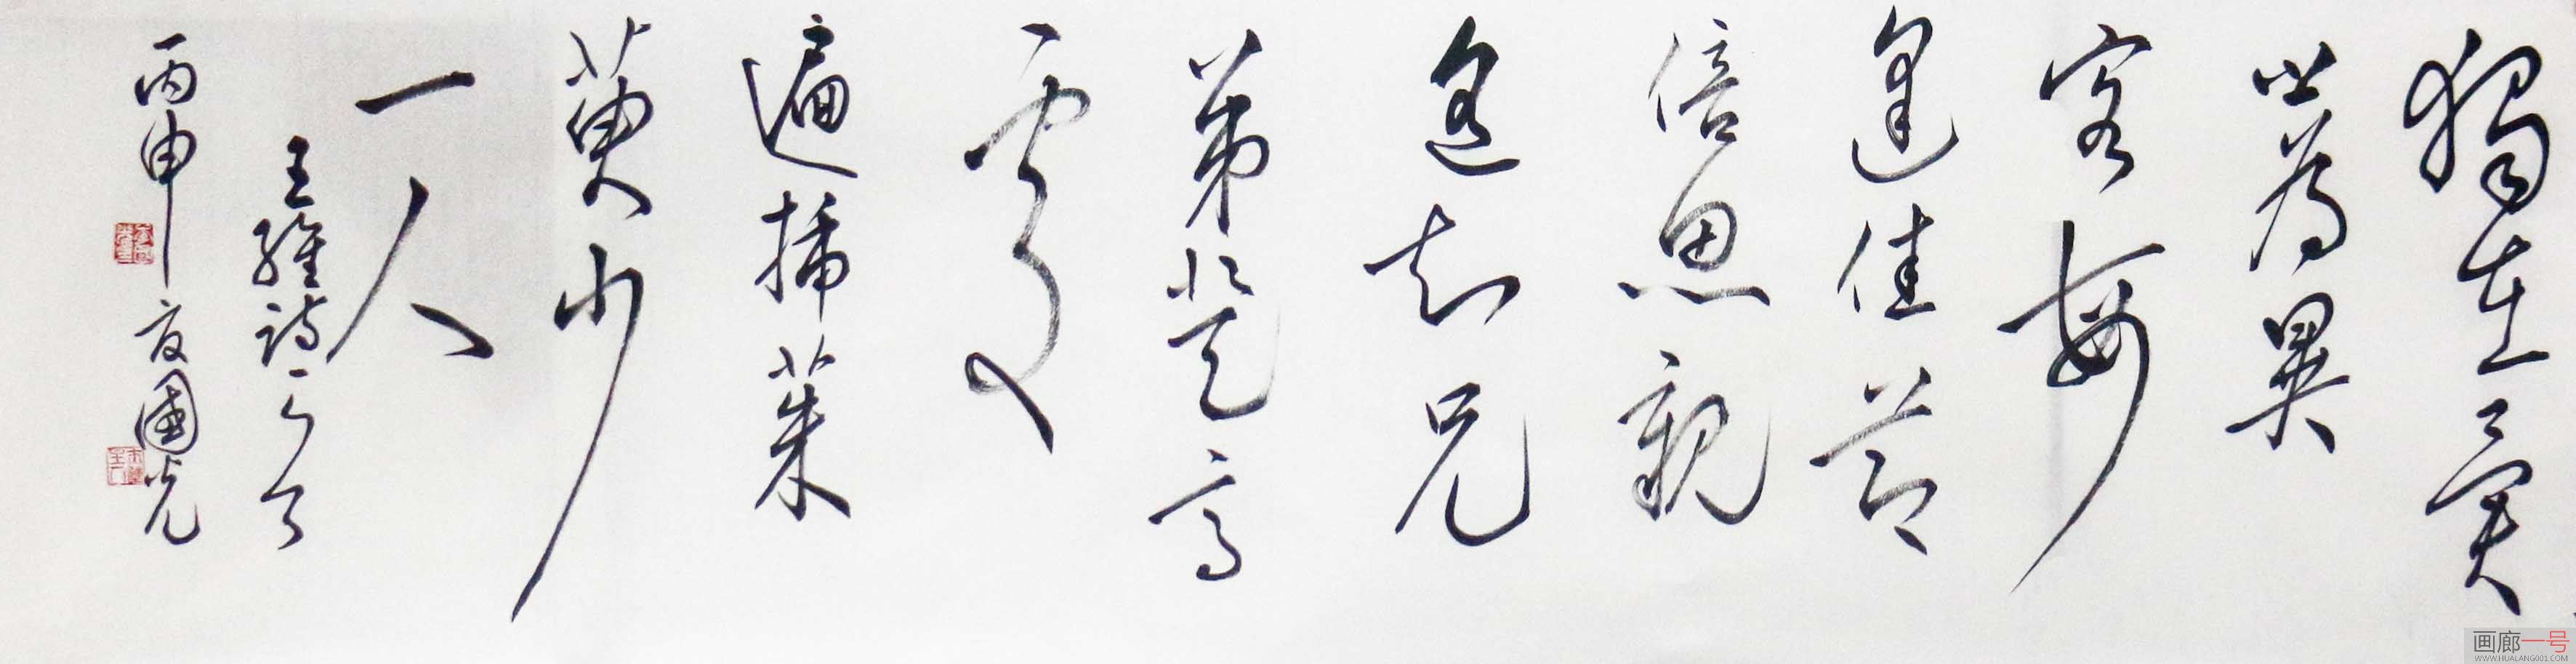 獨在異
鄉為異
客每
逢佳節
倍思親
遙知兄
弟登高
處
遍插茱
萸少
一人
王維詩一首
丙申夏國光
画廊一号
WWW.HUALANG001.COM